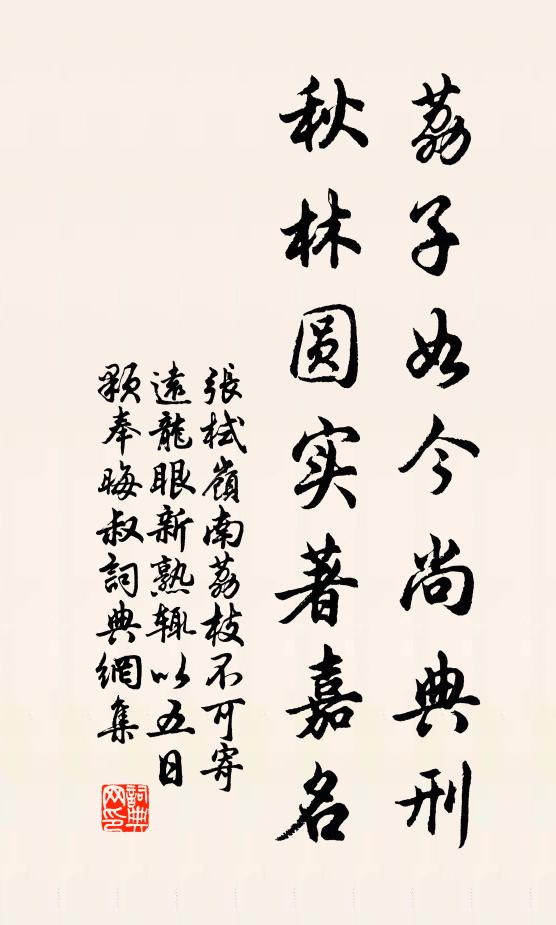 荔子如今尚典刑
秋林圆实著嘉名
張栻嶺南荔枝不可寄
遠龍眼新熟辄以五日
顆奉晦叔詞典網集
詞典
网印